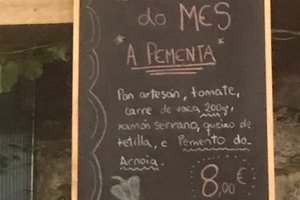 do MES
* A PEMENTA *
Pan artesán, tomate,
carne de vaca 200gr,
xamón serrano, queixo de
tetilla, e Pemento da
Arnoia.
8,00€